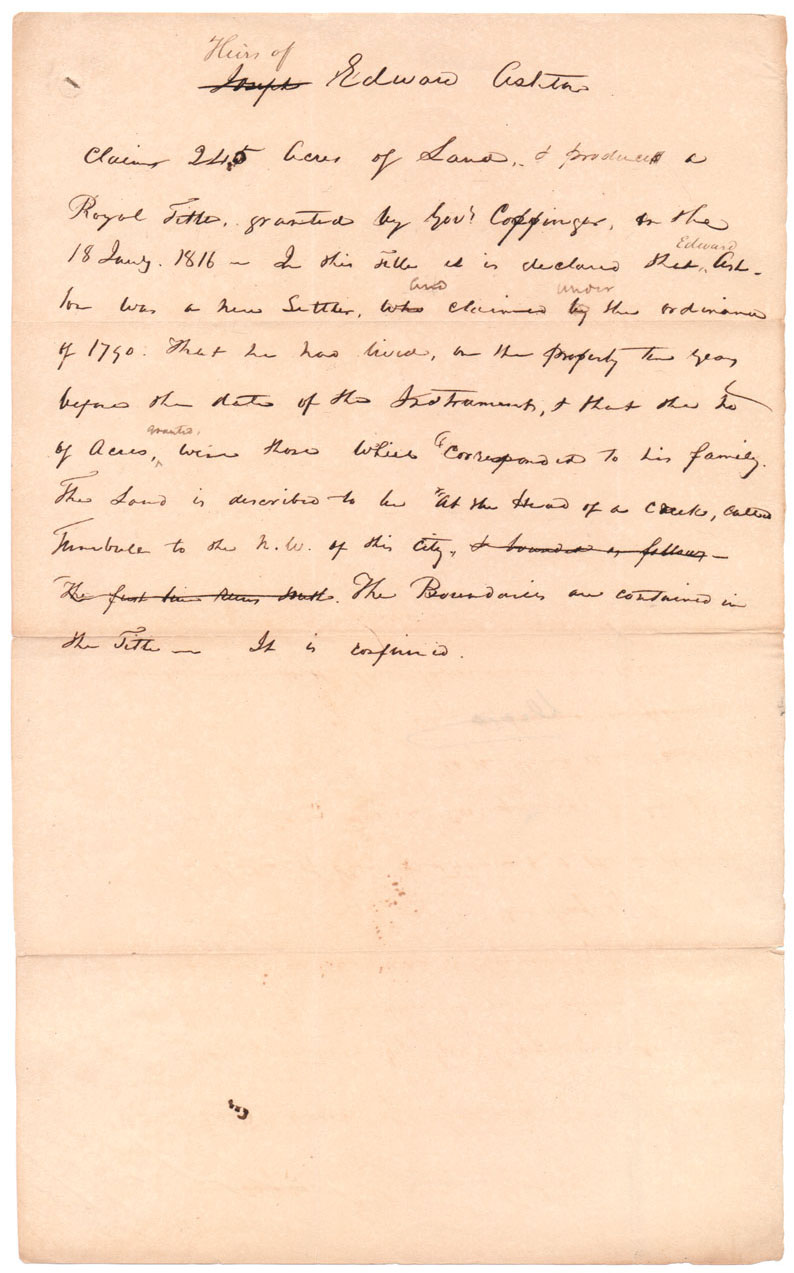 Heirs of
Joseph Edward Ashton
Claims 245 Acres of Land, & produces a
Royal Title, granted by Govr. Coppinger, on the
18 Jany. 1816 — In this Title it is declared that Edward Ash-
ton was a new Settler, who and claimed by under the ordinance
of 1790. That he had lived, on the property ten years
before the date of the Instrument, & that the No
of Acres, granted, were those which "corresponded to his family.
The Land is described to be "at the Head of a creek, called
Turnbull to the N.W. of this City, & bounded as follows —
The first line runs South. The Boundaries are contained in
the Title — It is confirmed.